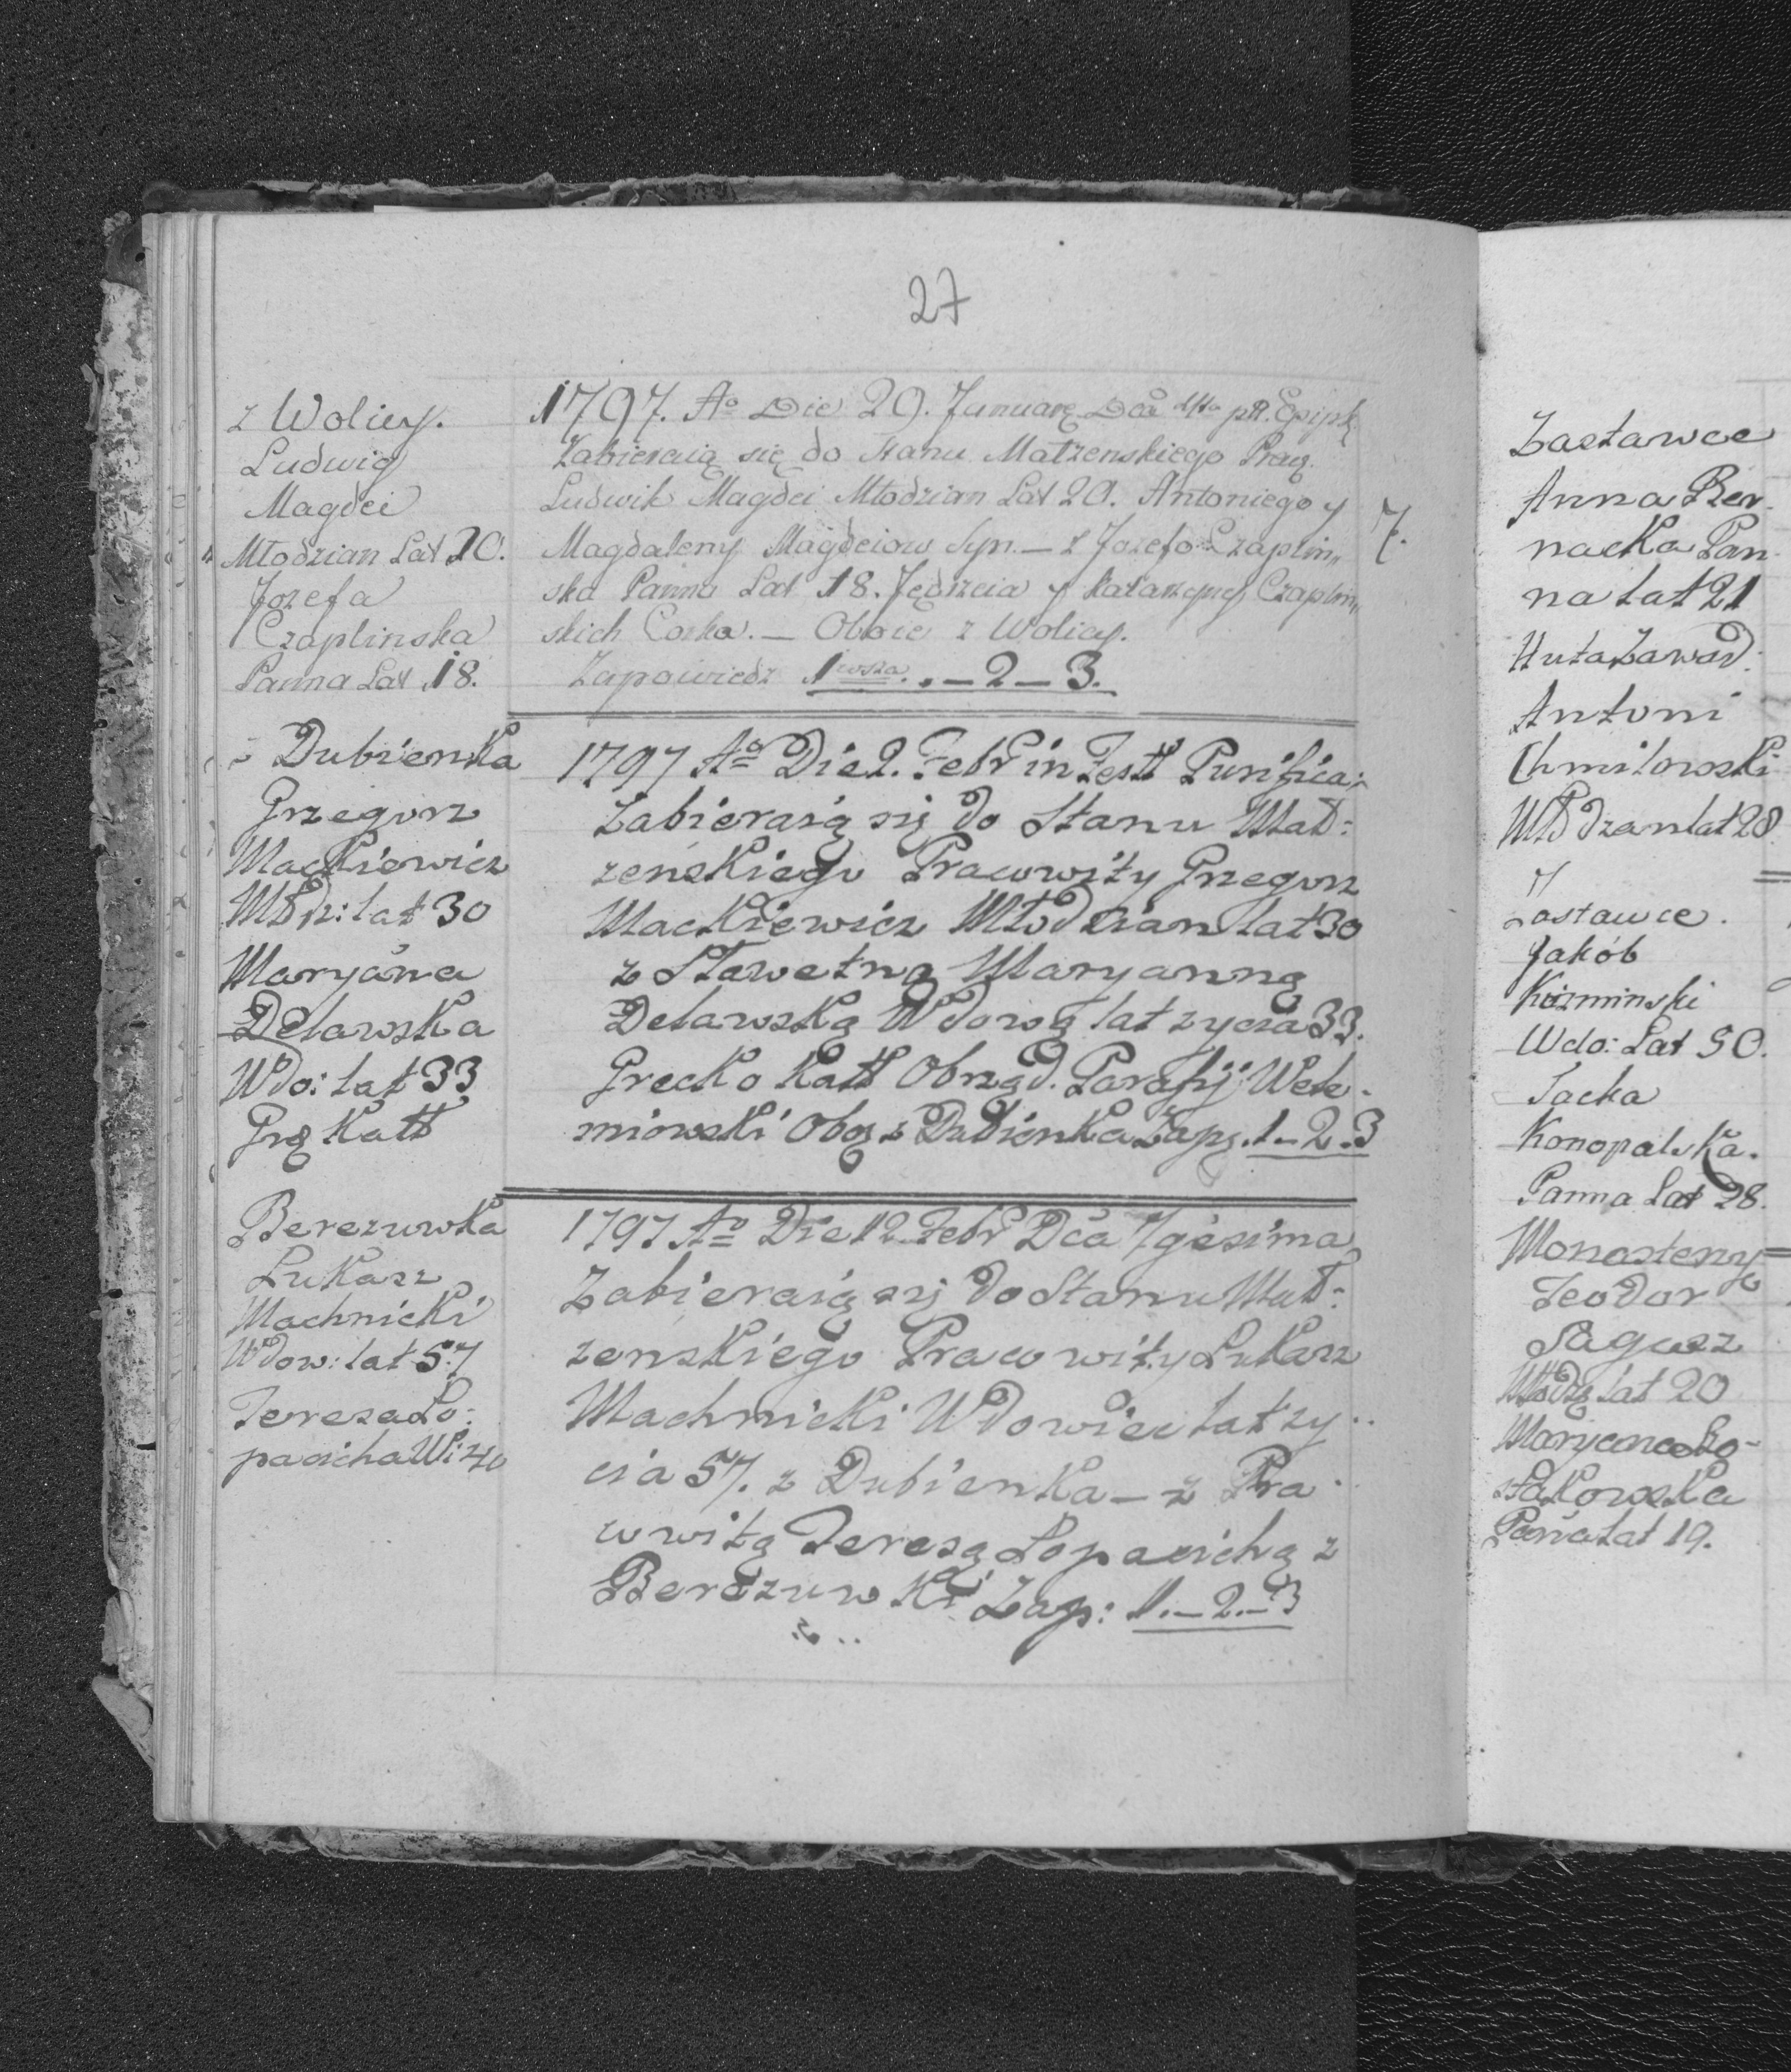 27
z Wolicy.
Ludwig
Magdei
Młodzian Lat 20.
Jozefa
Czaplinska
Panna Lat 18.
1797. Aº Die 29. Januarę Dca 4ta pst. Epiph.
Zabieraią się do Stanu Małzenskiego Prac.
Ludwik Magdei Młodzian Lat 20. Antoniego y
Magdaleny Magdeiow Syn. — z Jozefo Czaplin„
ska Panna Lat 18. Jędrzeia y Katarzyny Czaplin„
skich Corka. — Oboie z Wolicy.
Zapowiedz 1wsza. . — 2 — 3.
7.
Dubienka
Grzegorz
Mackiewicz
Młdz: lat 30
Maryana
Delawska
Wdo: lat 33
Grę Katt
1797 Aº Die 2. Febr in Festt Purifica:
Zabieraią się do Stanu Mał:
zenskiego Pracowity Grzegorz
Mackiewicz Młodzian lat 30
z Sławetną Maryanną
Delawską Wdową lat zycia 33.
Grecko Katt Obrząd. Parafij Wele.
miowski Oboę z Dubienka Zapę. 1 – 2 – 3
Berezuwka
Łukasz
Machnicki
Wdow: lat 57
Teresa Ło:
pacicha W: 40
1797 Aº Die 12 Febr Dca 7gesima
Zabieraią się do Stanu Mał:
zenskiego Pracowity Łukasz
Machnicki Wdowiec lat zy..
cia 57. z Dubienka – z Pra.
cowitą Teresą Łopacichą z
Berezuwki Zap: 1. – 2. – 3
Zastawce
Anna Ber.
nacka Pan
na lat 21
Huta Zawad.
Antoni
Chmilowski
Młodzan lat 28
7
Zastawce.
Jakób
Kózminski
Wdo: Lat 50.
Jacka
Konopalska.
Panna Lat 28.
Monastery
Teodor
Sagasz
Młodz lat 20
Maryana Ko-
złakowska
Pańa lat 19.